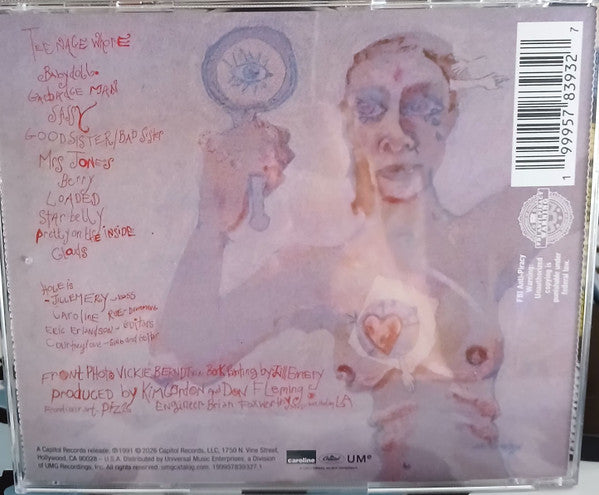 TEENAGE WHORE
Babydoll
GARBAGE MAN
SASSY
GOODSISTER/BAD Sister
MRS JONES
Berry
LOADED
Starbelly
Pretty on the INSIDE
Clouds
HOLE is
- JILL EMERY - BASS
CAROLINE RUE DRUMS
Eric Erlandson - Guitars
Courtney Love
FRONT Photo VICKIE BERNDT Back Painting by Jill Emery
PRODUCED by Kim Gordon and Don Fleming
Engineer Brian LA
A Capitol Records release; ℗1991 © 2026 Capitol Records, LLC, 1750 N. Vine Street,
Hollywood, CA 90028 – U.S.A. Distributed by Universal Music Enterprises, a Division
of UMG Recordings, Inc. All rights reserved. umgcatalog.com 199957839327.1
caroline
Capitol
UMe
1 99957 83932 7
FBI Anti-Piracy
Warning:
Unauthorized
copying is
punishable under
federal law.